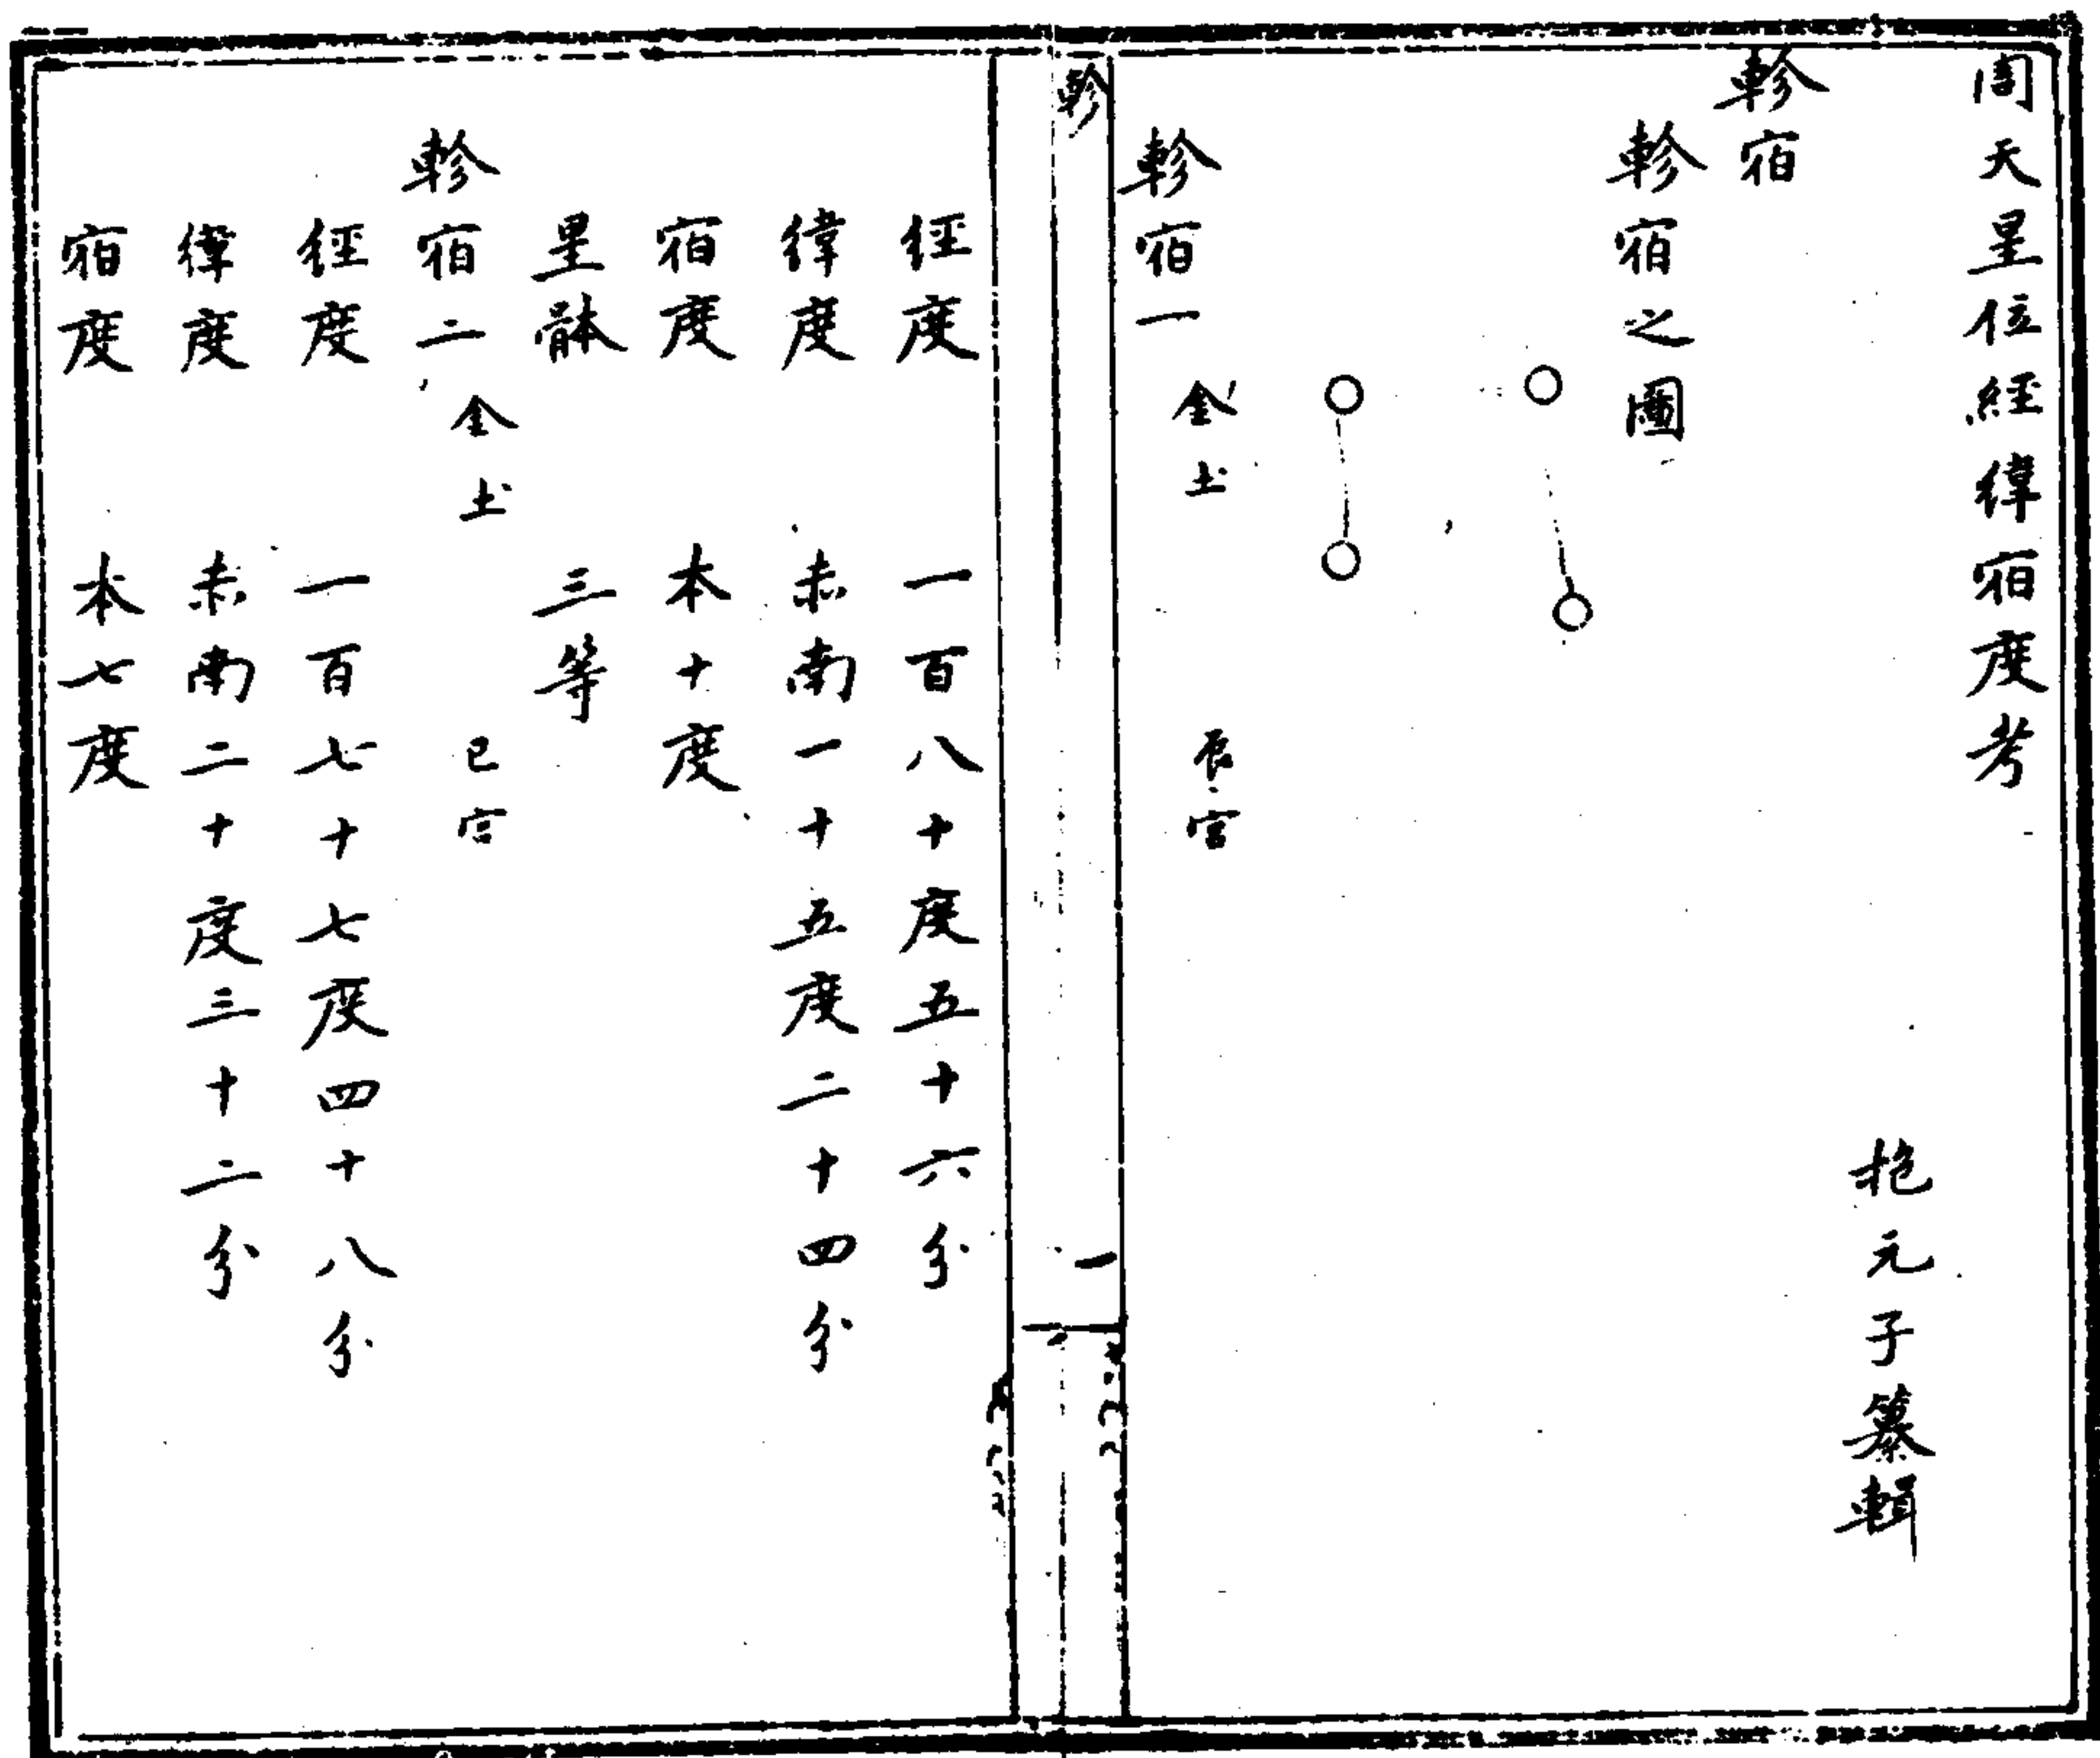 周天星位經緯宿度考
抱元子纂輯
軫宿
軫宿之圖
軫宿一 金土 辰宮
軫 一
徑度 一百八十度五十六分
緯度 赤南一十五度二十四分
宿度 本十度
星體 三等
軫宿二 金土 巳宮
徑度 一百七十七度四十八分
緯度 赤南二十度三十二分
宿度 本七度